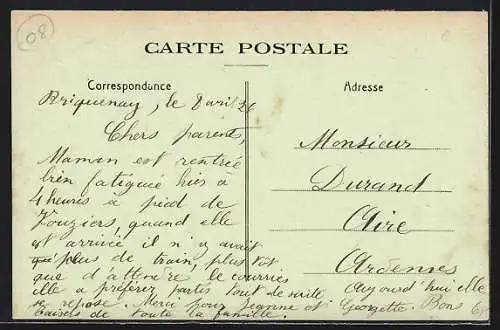 08
CARTE POSTALE
Correspondance
Adresse
Briquenay, le 8 avril 26
Chers parents,
Maman est rentrée
bien fatiguée hier à
4 heures à pied de
Vouziers, quand elle
est arrivée il n'y avait
plus de train, plus tôt
que d'attendre le courrier
elle a préférer partir tout de suite
se repose. Merci pour Jeanne et Georgette. Bons
baisers de toute la famille.
Monsieur
Durand
Aire
Ardennes
Aujourd'hui elle